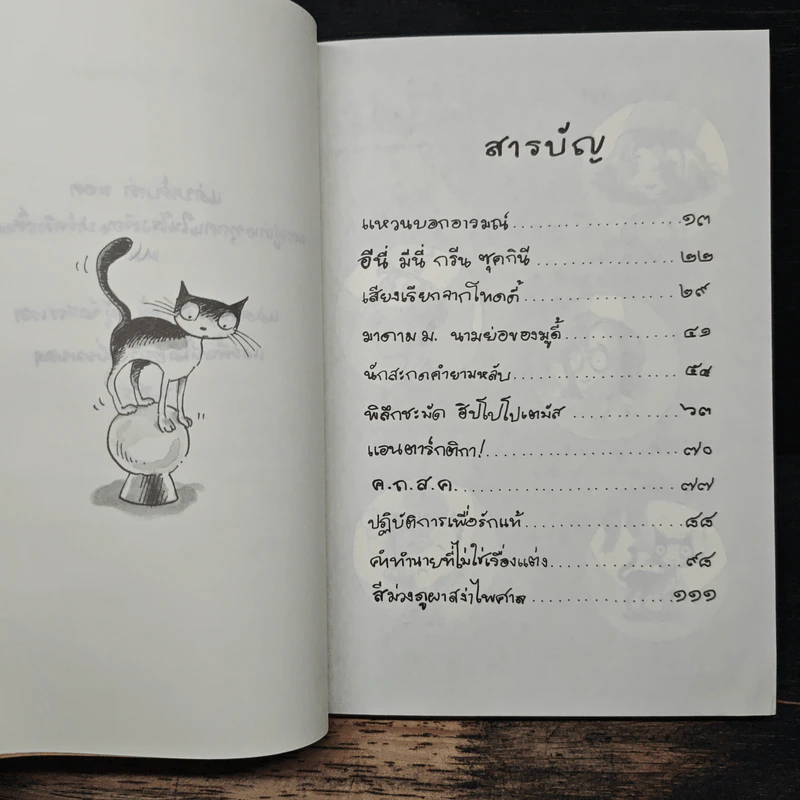 สารบัญ
แหวนบอกอารมณ์ ๑๓
อีนี่ มีนี่ กรีน ซุคกินี ๒๒
เสียงเรียกจากโทดดี้ ๒๙
มาดาม ม. นามย่อของมูดี้ ๔๑
นักสะกดคำยามหลับ ๕๔
พิลึกชะมัด ฮิปโปโปเตมัส ๖๓
แอนตาร์กติกา! ๗๐
ค.ถ.ส.ค. ๗๗
ปฏิบัติการเพื่อรักแท้ ๘๘
คำทำนายที่ไม่ใช่เรื่องแต่ง ๙๘
สีม่วงภูผาสง่าไพศาล ๑๑๑